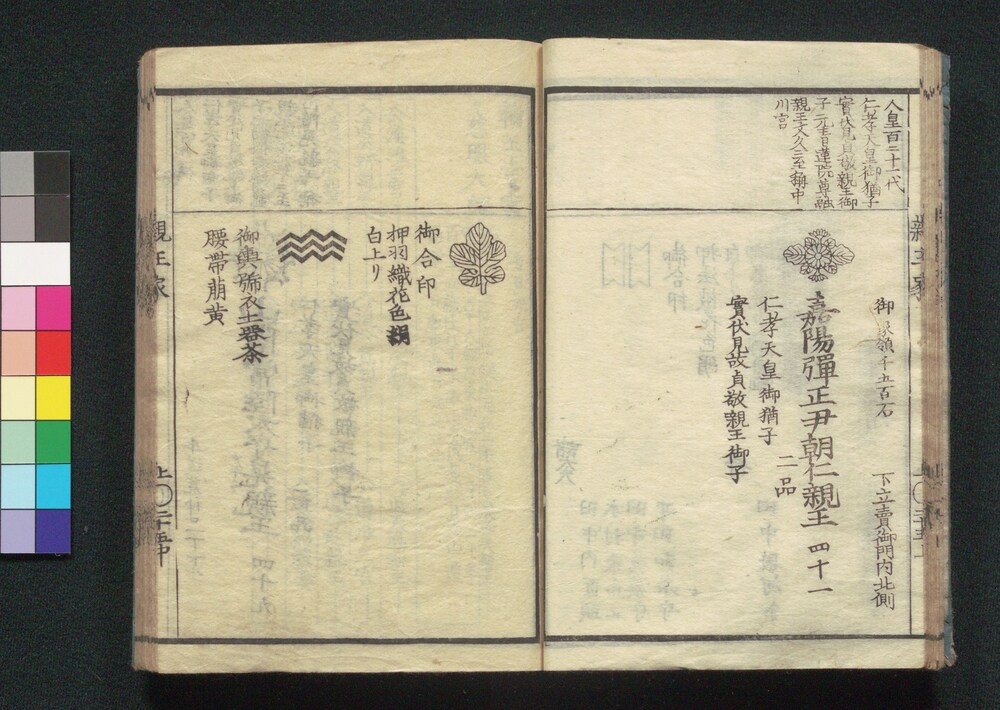 人皇百二十一代
仁孝天皇御猶子
實伏見貞敬親王御
子元青蓮院尊融
親王文久三亥稱中
川宮
御家領千五百石
下立賣御門内北側
嘉陽彈正尹朝仁親王 四十一
二品
仁孝天皇御猶子
實伏見故貞敬親王御子
御合印
押羽織花色絹
白上り
御輿舁衣土器茶
腰帶萠黄
親王家
上